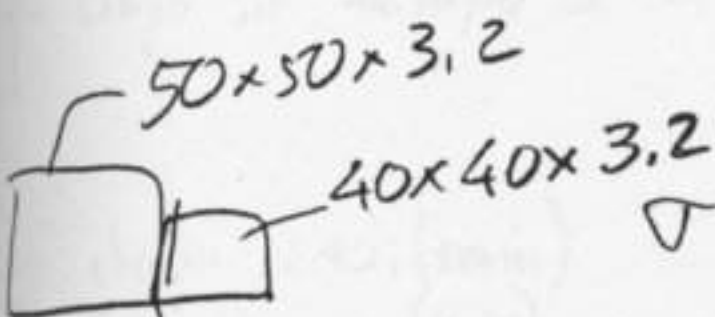 50×50×3.2
40×40×3.2